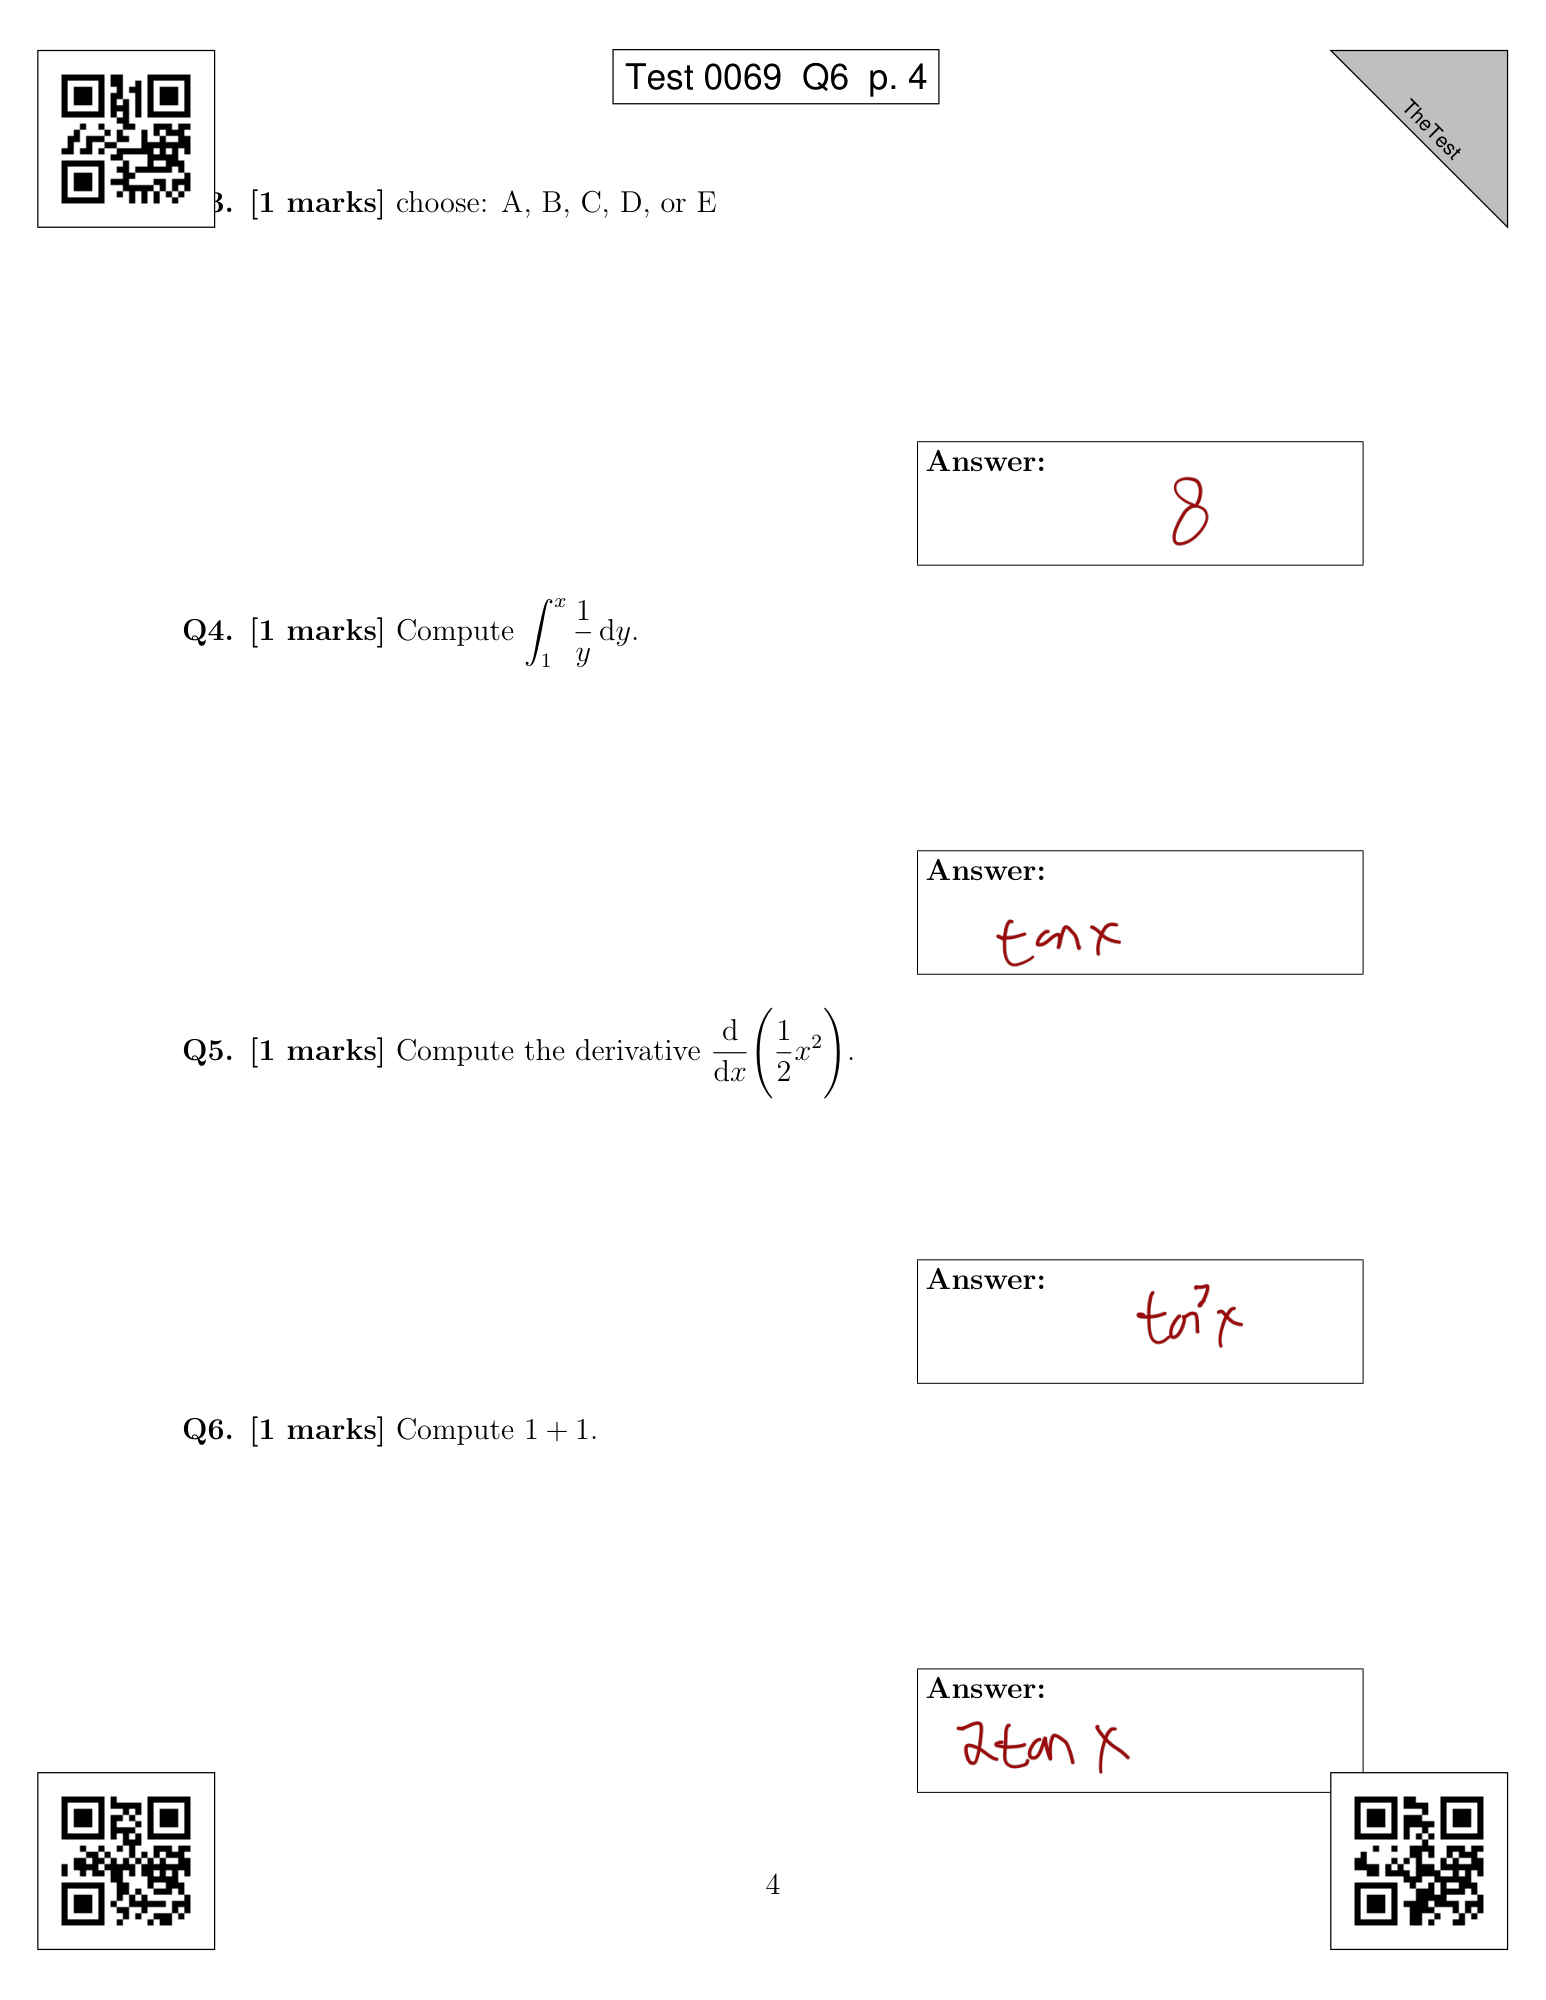 Test 0069 Q6 p. 4
TheTest
3. [1 marks] choose: A, B, C, D, or E
Answer:
8
Q4. [1 marks] Compute ∫₁ˣ 1/y dy.
Answer:
tan x
Q5. [1 marks] Compute the derivative d/dx (1/2 x²).
Answer:
tan⁷ x
Q6. [1 marks] Compute 1 + 1.
Answer:
2tan x
4